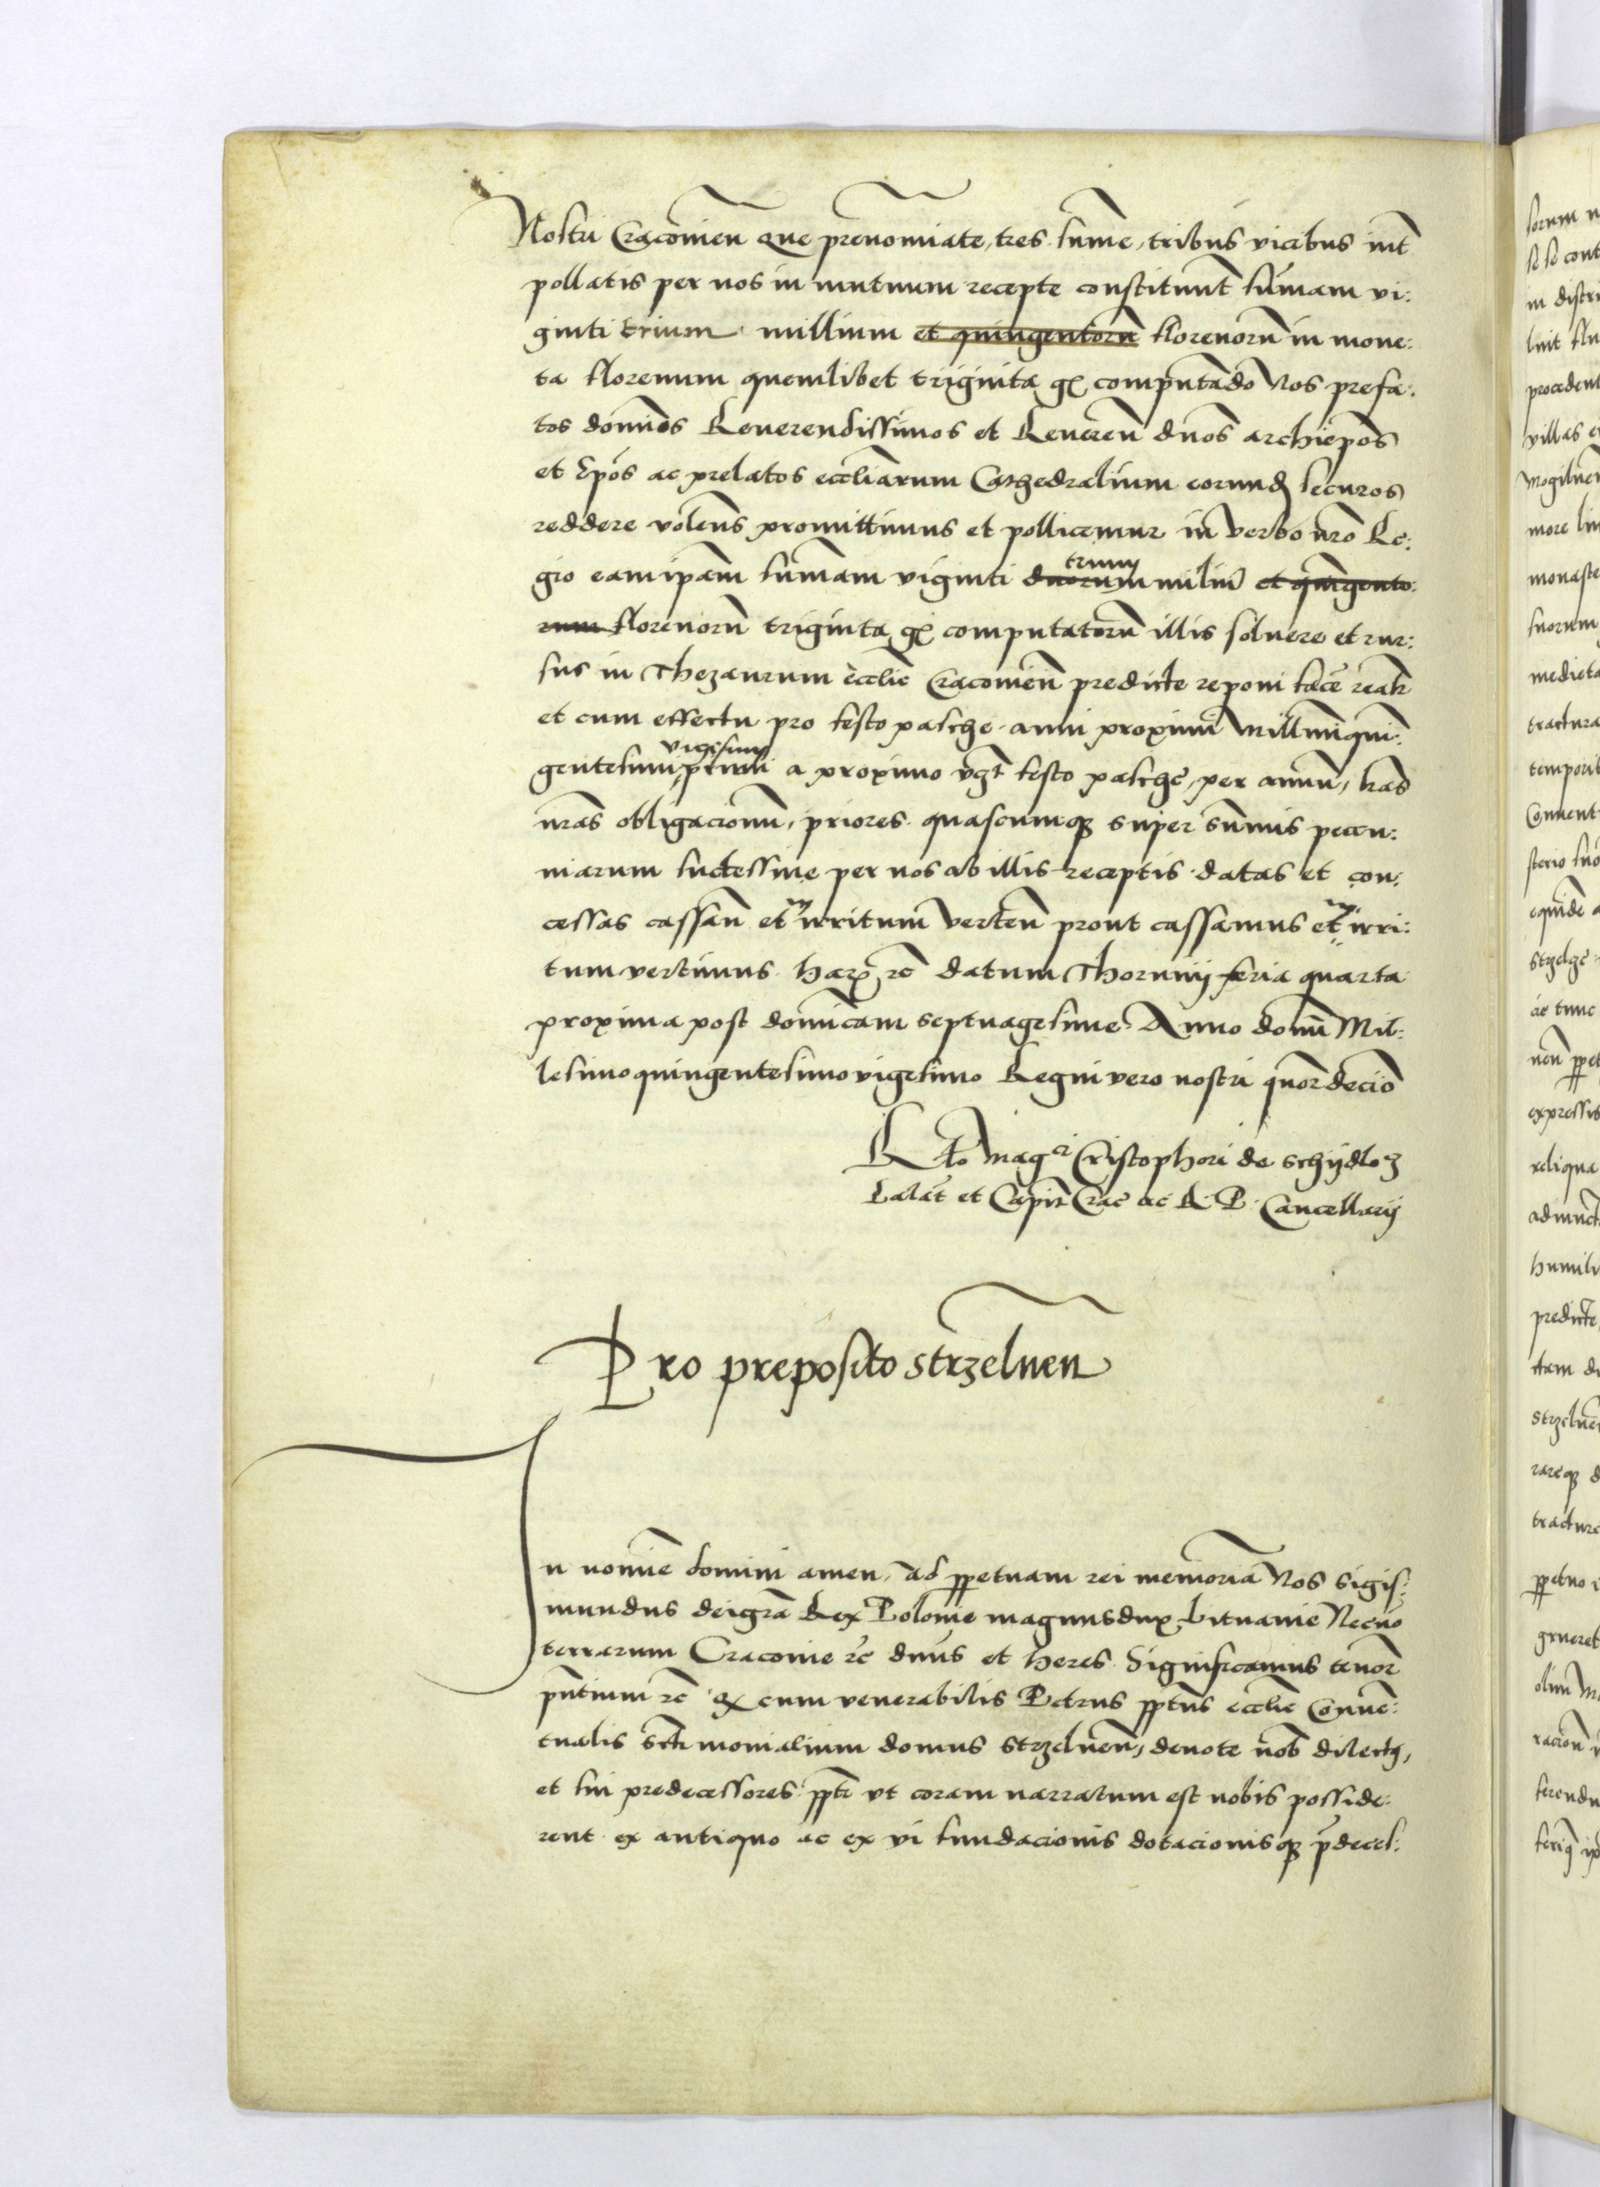 Nostri Cracouien Que prenomiate, tres sume, tribus vicibus int
pollatis per nos in mutuum recepte constituunt sumam vi:
ginti trium millium et quingentoru florenoru in mone:
ta florenum quemlibet triginta g computado Nos prefa:
tos dominos Reuerendissimos et Reueren dnos archiepos
et Epos ac prelatos eccliarum Cathedralium eorund securos
reddere volens promittimus et pollicemur in verbo nro Re:
gio eam ipam sumam viginti duorum trium miliu et quingento:
rum florenoru triginta g computatoru illis soluere et rur:
sus in Thezaurum ecclie Cracouien predicte reponi facе realr
et cum effectu pro festo pasche anni proximi Millmi quin:
gentesimi vigesimi primi a proximo festo pasche, per annu, has
nras obligacionu, priores quascumq super summis pecu:
niarum successiue per nos ab illis receptis datas et con:
cessas cassan et in irritum verten prout cassamus et in irri:
tum vertimus. har re datum Thorunij feria quarta
proxima post dominicam septuagesime Anno domi Mil:
lesimo quingentesimo vigesimo Regni vero nostri quordecio
Rlo Magci Cristophori de schydlo
Palat et Capit Crac ac R. P. Cancellarij
Pro preposito strzelnen
In nomie domini amen, ad ppetuam rei memoria Nos Sigis:
mundus dei gra Rex Polonie magnus dux Lituanie Necno
terrarum Cracouie rc dnus et heres Significamus tenor
pntium rc Q cum venerabilis Petrus pptus ecclie Conue:
tualis scti monialium domus strzelnen, deuote nob dilectq,
et sui predecessores ppti vt coram narratum est nobis posside:
rent ex antiquo ac ex vi fundacionis dotacionisq pdeces: